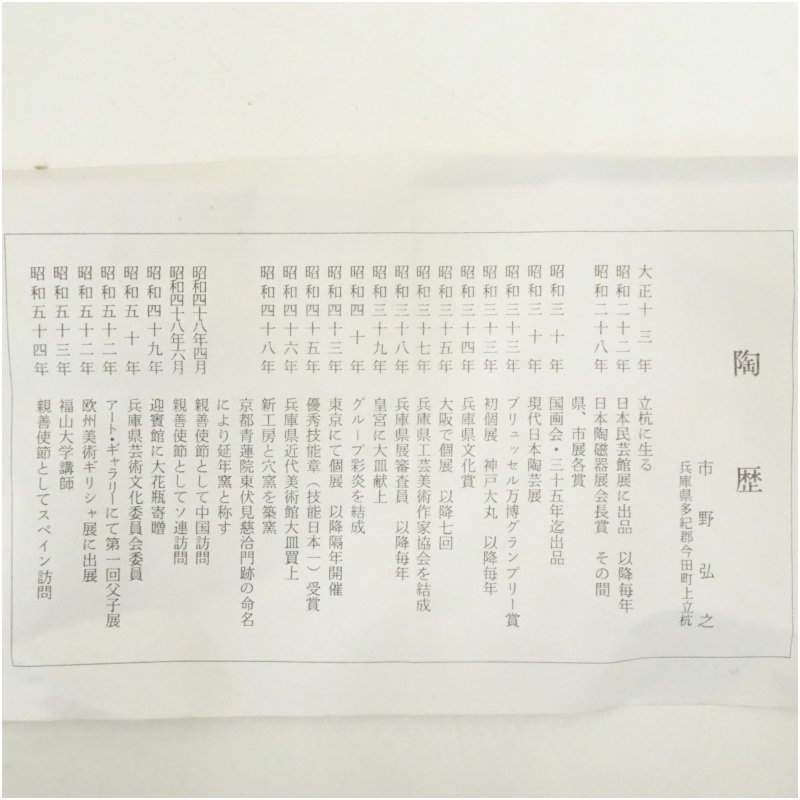 陶歴
市野弘之
兵庫県多紀郡今田町上立杭
大正十三年 立杭に生る
昭和二十二年 日本民芸館展に出品 以降毎年
昭和二十八年 日本陶磁器展会長賞 その間
県、市展各賞
昭和三十年 国画会・三十五年迄出品
昭和三十年 現代日本陶芸展
昭和三十三年 ブリュッセル万博グランプリー賞
昭和三十三年 初個展 神戸大丸 以降毎年
昭和三十四年 兵庫県文化賞
昭和三十五年 大阪で個展 以降七回
昭和三十七年 兵庫県工芸美術作家協会を結成
昭和三十八年 兵庫県展審査員 以降毎年
昭和三十九年 皇宮に大皿献上
昭和四十年 グループ彩炎を結成
昭和四十四年 東京にて個展 以降隔年開催
昭和四十五年 優秀技能章（技能日本一）受賞
昭和四十六年 兵庫県近代美術館大皿買上
昭和四十八年 新工房と穴窯を築窯
京都青蓮院東伏見慈洽門跡の命名
により延年窯と称す
昭和四十八年四月 親善使節として中国訪問
昭和四十八年六月 親善使節としてソ連訪問
昭和四十九年 迎賓館に大花瓶寄贈
昭和五十年 兵庫県芸術文化委員会委員
昭和五十二年 アート・ギャラリーにて第一回父子展
昭和五十二年 欧州美術ギリシャ展に出展
昭和五十三年 福山大学講師
昭和五十四年 親善使節としてスペイン訪問